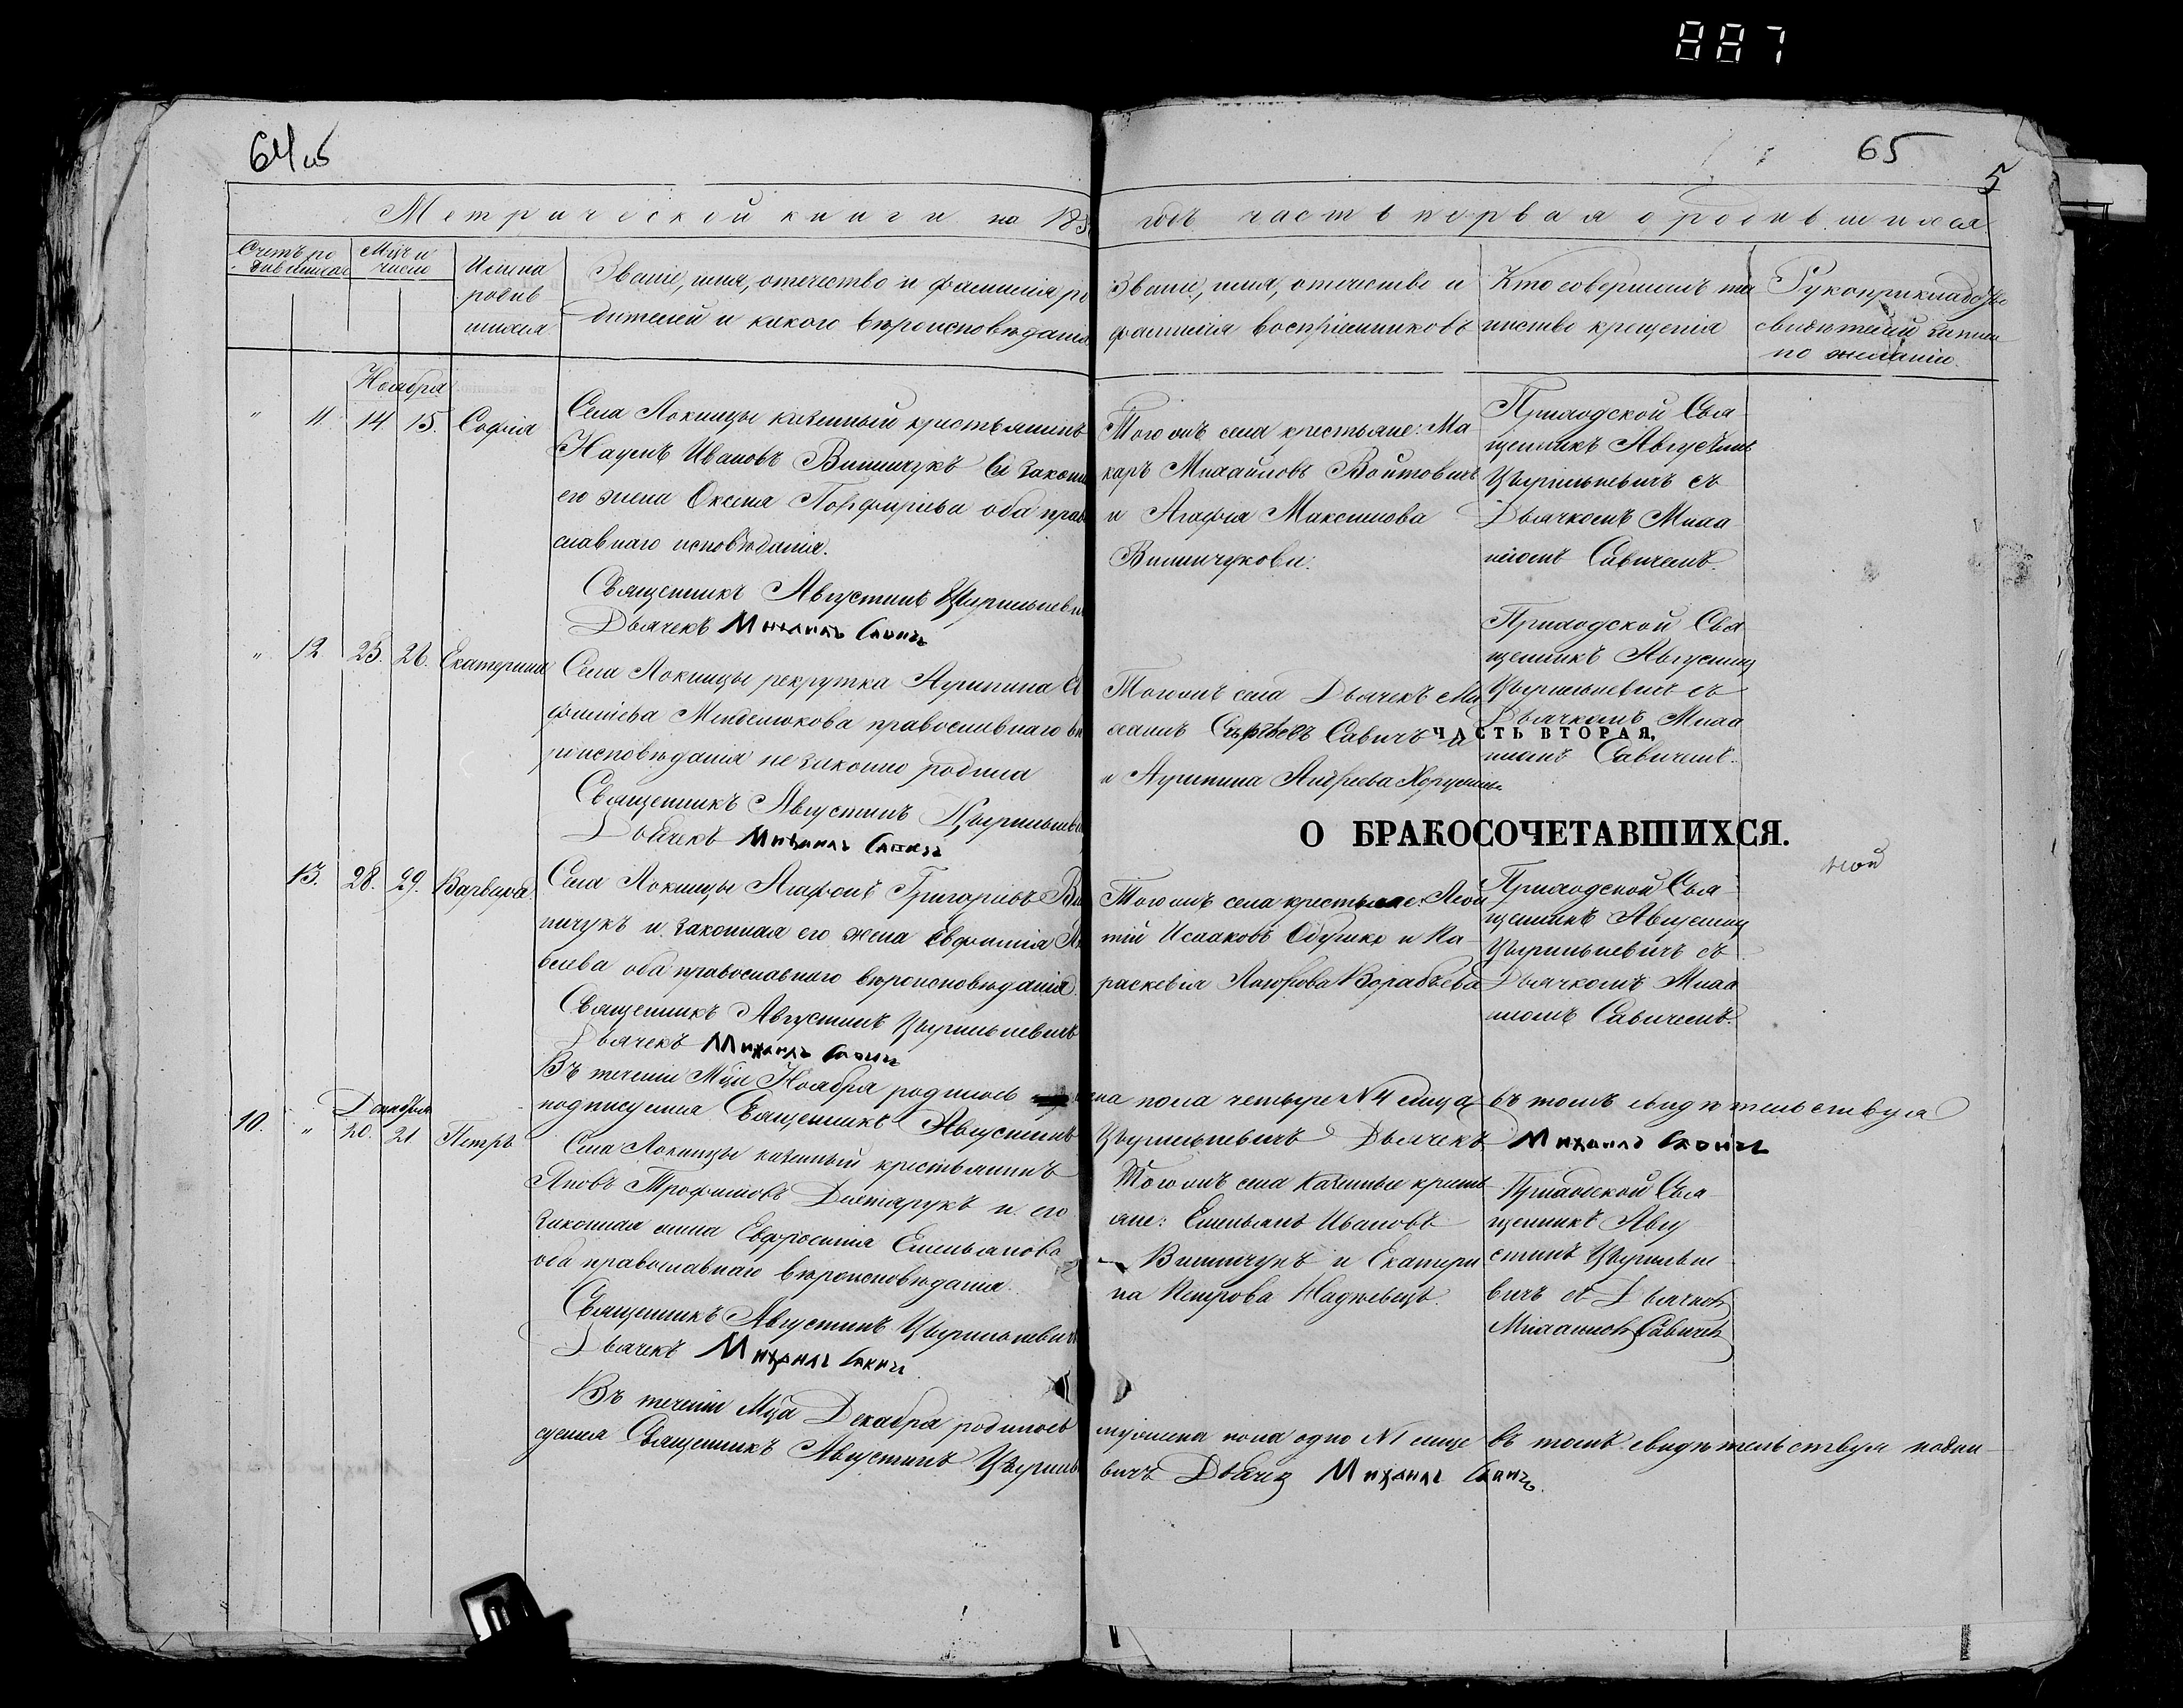 887
64об
65
5
Метрической книги на 185
годъ часть первая о родившихся
Счетъ ро
дившихся
Мцъ и
число
Имена
родив
шихся
Званіе, имя, отечество и фамилія ро
дителей и какого вѣроисповѣданія
Званіе, имя, отечество и
фамилія воспріемниковъ
Кто совершилъ та
инство крещенія
Рукоприкладство
свидѣтелей записи
по желанію.
Ноября
" 11. 14 15. Софія
Села Локницы казенный крестьянинъ
Наумъ Ивановъ Виничукъ и законн
его жена Оксенія Порфиріева оба прав
славнаго исповѣданія.
Священникъ Августинъ
Дьячекъ Михаилъ Савичъ
Того жъ села крестьяне: Ма
каръ Михайловъ Войтовичъ
и Агафія Максимова
Виничукова.
Приходской Свя
щенникъ Августинъ
съ
Дьячкомъ Миха
иломъ Савичемъ.
" 12 25. 26. Екатерина
Села Локницы рекрутка Агрипина
православнаго вѣ
роисповѣданія не законно родила
Священникъ Августинъ
Дьячекъ Михаилъ Савичъ
Того жъ села Дьячекъ Ми
хаилъ Савичъ
и Агрипина Андреева
Приходской Свя
щенникъ Августинъ
съ
Дьячкомъ Миха
иломъ Савичемъ.
ЧАСТЬ ВТОРАЯ,
О БРАКОСОЧЕТАВШИХСЯ.
ной
13. 28. 29. Варвара
Села Локницы Агафонъ Григоріевъ Ви
ничукъ и законная его жена Евфимія
оба православнаго вѣроисповѣданія.
Священникъ Августинъ
Дьячекъ Михаилъ Савичъ
Того жъ села крестьяне: Леон
тій Исааковъ и Па
раскевія Воробьева
Приходской Свя
щенникъ Августинъ
съ
Дьячкомъ Миха
иломъ Савичемъ.
Въ теченіи Мца Ноября родилось
пола четыре №4 лица въ томъ свидѣтельствуя
подписуемся Священникъ Августинъ
Дьячекъ Михаилъ Савичъ
Декабря
10. " 20. 21 Петръ
Села Локницы казенный крестьянинъ
Яковъ Трофимовъ Дмитрукъ и его
законная жена Евфросинія Емельянова
оба православнаго вѣроисповѣданія.
Священникъ Августинъ
Дьячекъ Михаилъ Савичъ
Того жъ села казенные крестья
яне: Емельянъ Ивановъ
Виничукъ и Екатери
на Петрова
Приходской Свя
щенникъ Авгу
стинъ
вичъ съ Дьячком
Михаилом Савичем
Въ теченіи Мца Декабря родилось
мужеска пола одно №1 лице въ томъ свидѣтельствуя подпи
суемся Священникъ Августинъ
вичъ Дьячекъ Михаилъ Савичъ.